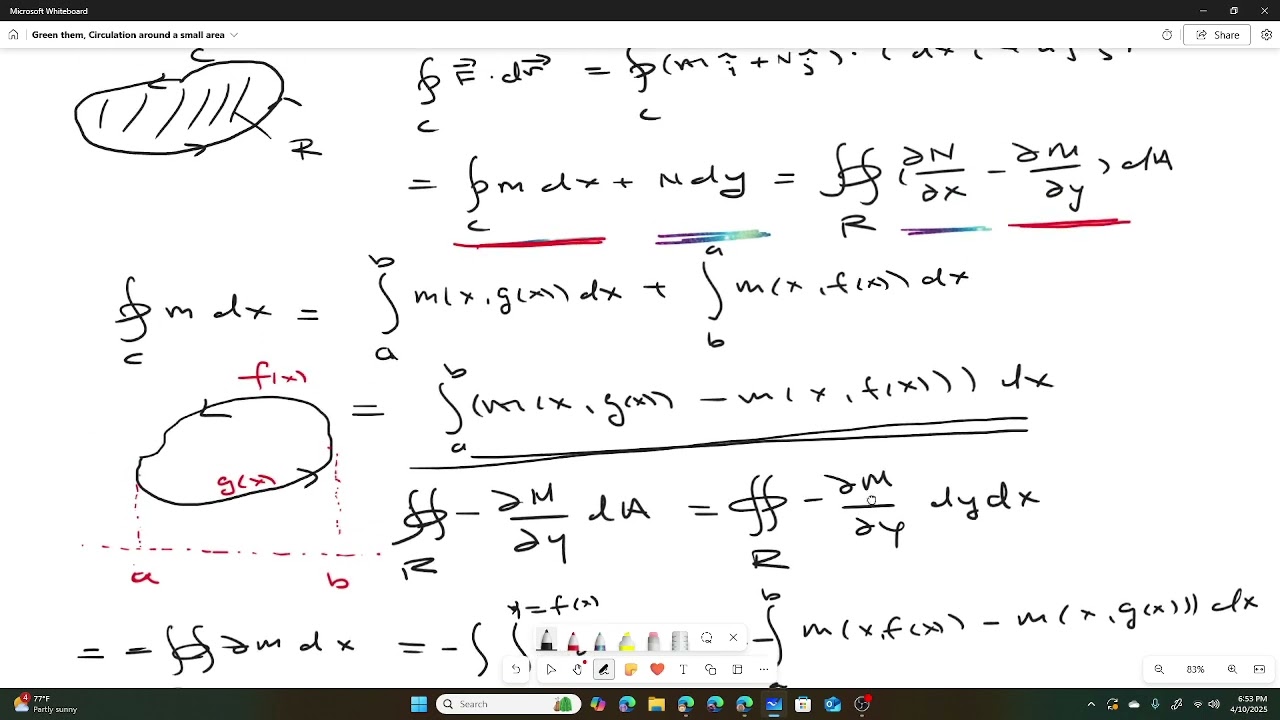 Microsoft Whiteboard
Green them, Circulation around a small area
Share
C
R
∮_C F⃗ · dr⃗ = ∮_C (m î + N ĵ) · (dx
= ∮_C m dx + N dy = ∯_R (∂N/∂x − ∂M/∂y) dA
∮_C m dx = ∫_a^b m(x, g(x)) dx + ∫_b^a m(x, f(x)) dx
f(x)
g(x)
a b
= ∫_a^b (m(x, g(x)) − m(x, f(x))) dx
∯_R − ∂M/∂y dA = ∯_R − ∂M/∂y dy dx
= − ∯ ∂m dx = − ∫ ∫^{y=f(x)} − ∫_a^b m(x, f(x)) − m(x, g(x))) dx
83%
4
77°F
Partly sunny
Search
6:53 PM
4/10/2025